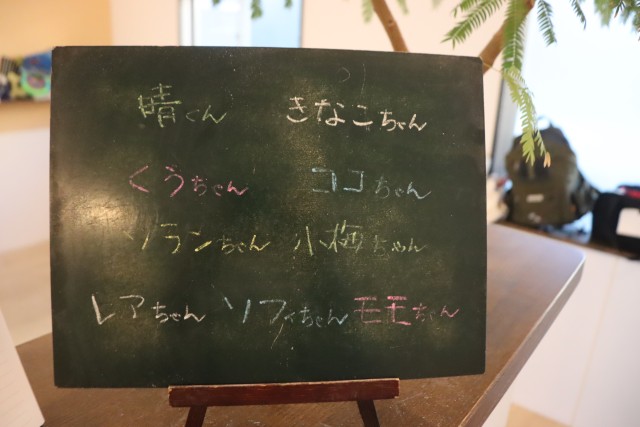 晴くん きなこちゃん
くうちゃん ココちゃん
ソランちゃん 小梅ちゃん
レアちゃん ソフィちゃん モモちゃん